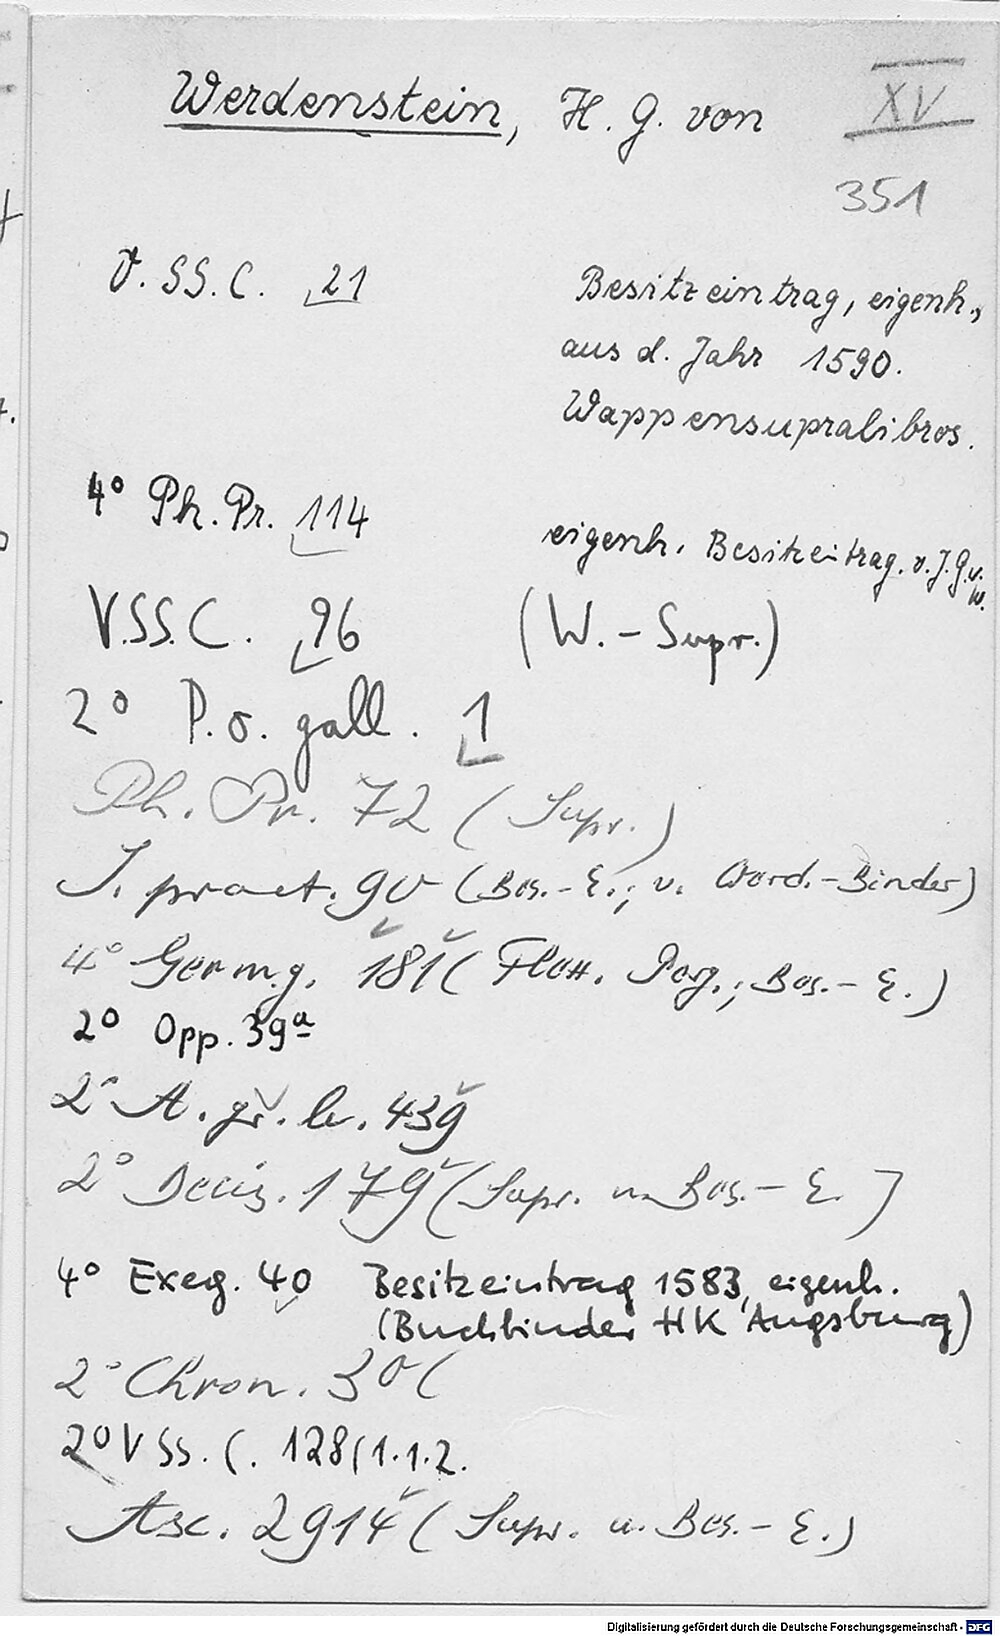 Werdenstein, H. G. von
XV
351
V. SS. C. 21
Besitzeintrag, eigenh.,
aus d. Jahr 1590.
Wappensupralibros.
4° Ph. Pr. 114
eigenh. Besitzeitrag. v. J. G. v. W.
V.SS. C. 96 (W. - Supr.)
2° P. o. gall. 1
Ph. Pr. 72 (Supr.)
J. pract. 90 (Bes. - E.; v. - Binder)
4° Germ. g. 181 (Bes. - E.)
2° Opp. 39a
2° A. gr. b. 439
2° Decis. 179 (Supr. u. Bes. - E.)
4° Exeg. 40 Besitzeintrag 1583, eigenh.
(Buchbinder HK Augsburg)
2° Chron. 30
2° V SS. C. 128/1.1.2.
Asc. 2914 (Supr. u. Bes. - E.)
Digitalisierung gefördert durch die Deutsche Forschungsgemeinschaft - DFG